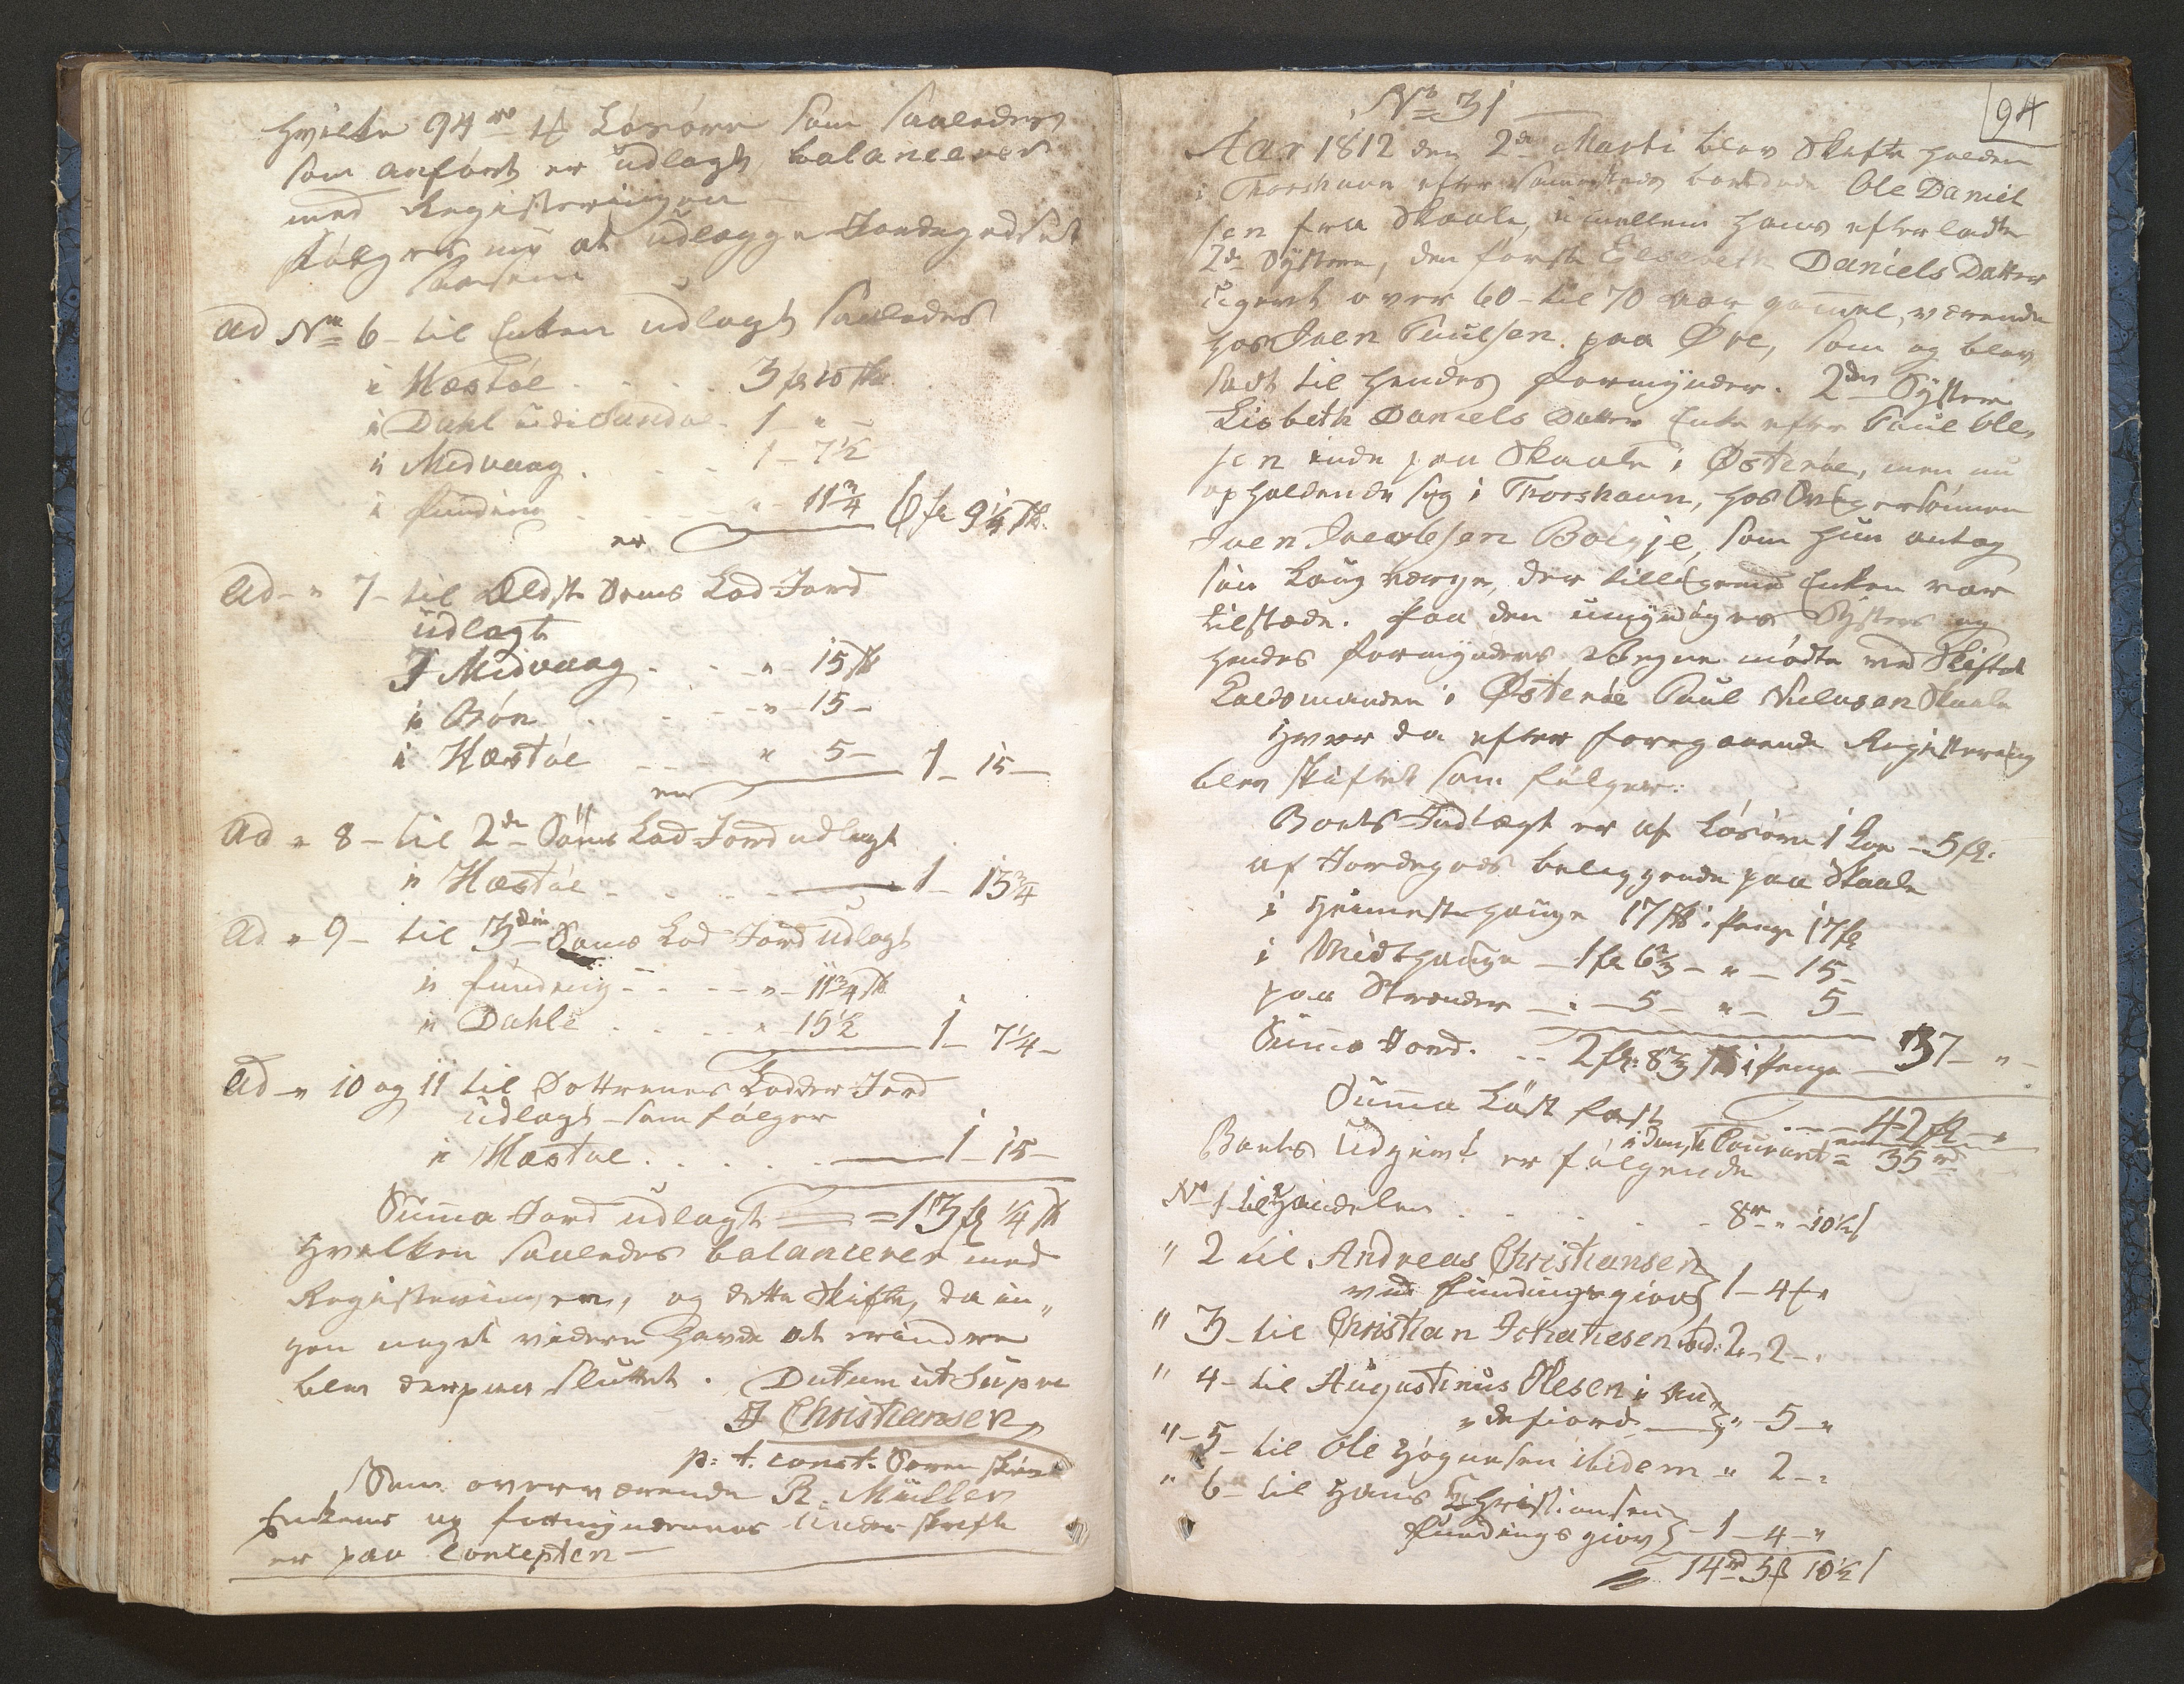 hvilke 94 rd 4 ß Løsøre som saaledes
som anført er udlagt balancerer
med Registeringen
følger nu at udlægge Jordegodset
saasom
ad No 6 - til Enken udlagt saaledes
i Mæstøe . . . . 3 fl 10 sk
i Dahl udi Sandøe - 1 - " -
i Midvaag . . . 1 - 7½
i funding . . . " - 11¾
er 6 fl 9¼ sk.
ad - " 7 - til Ældste Søns Lod Jord
udlagt
I Midvaag . . . " - 15 sk
i Bøn . . . " - 15 -
i Mæstøe . . . " 5 - 1 - 15 -
er
ad " 8 - til 2den Søns Lod Jord udlagt
i Mæstøe . . . 1 - 13¾
ad " 9 - til 3die Søns Lod Jord udlagt
i funding - . . - " - 11¾ sk
i Dahle . . . . " - 15½ 1 - 7¼ -
ad - " 10 og 11 til Døttrenes Lodder Jord
udlagt - som følger
i Mæstøe . . . . . 1 - 15 -
Suma Jord udlagt = 13 fl ¼ sk
hvilken saaledes balancerer med
Registeringen, og dette Skifte, da in„
gen noget videre havde at erindre
blev derpaa sluttet. Datum ut Supra
J Christiansen
p: t. const: Soren skriver
Som overværende R. Müller
Enkens og formynderenes Underskrift
er paa Concepten -
94
No 31
Aar 1812 den 2den Marti blev Skifte holden
i Thorshavn efter sammesteds bortdøde Ole Daniel
sen fra Skaale, imellem hans efterladte
2de Systre, den første Elsebeth Daniels Datter
ugivt over 60 - til 70 Aar gammel, værende
hos Joen Poulsen paa Øre, som og blev
sadt til hendes formynder. 2den Syster
Lisbeth Daniels Datter Enke efter Poul Ole„
sen inde paa Skaale i Østerøe, men nu
opholdende sig i Thorshavn, hos Svigersønnen
Joen Jacobsen Boigje, som hun antog
sin Laugværge, der tilligemed Enken var
tilstæde. Paa den umyndiges Systers og
hendes formynders Vegne mødte ved Skiftet
Laldsmanden i Østerøe Poul Niclasen Skaale
Hvor da efter foregaaende Registering
blev skiftet som følger:
Boets Indtægt er af Løsøre 1 Koe - 5 fl.
af Jordegods beliggende paa Skaale
i Heimestehauge 17 sk i Penge 17 fl
i Midthauge - 1 fl 6⅔ - " - 15 -
paa Strænder - " - 5 - " - 5 -
Suma Jord. - - 2 fl: 8⅔ sk i Penge - 37 - " -
Suma Løst fast . - - - 42 fl "
i Dansk Courant = 35 rd
Boets Udgivt er følgende
No 1 til Handelen . . . . . 8 rd " - 10½ s
" 2 til Andreas Christiansen
ved Fundingsgiov 1 - 4 ß "
" 3 - til Christian Ichatiesen ibid: 2 - 2 - "
" 4 - til Augustinus Olesen i An„
„defiord " - 5 - "
" - 5 - til Ole Høgnesen ibidem " 2 - "
" 6 - til Hans Christiansen
fundingsgiov - 1 - 4 - "
14 rd 5 ß 10½ s